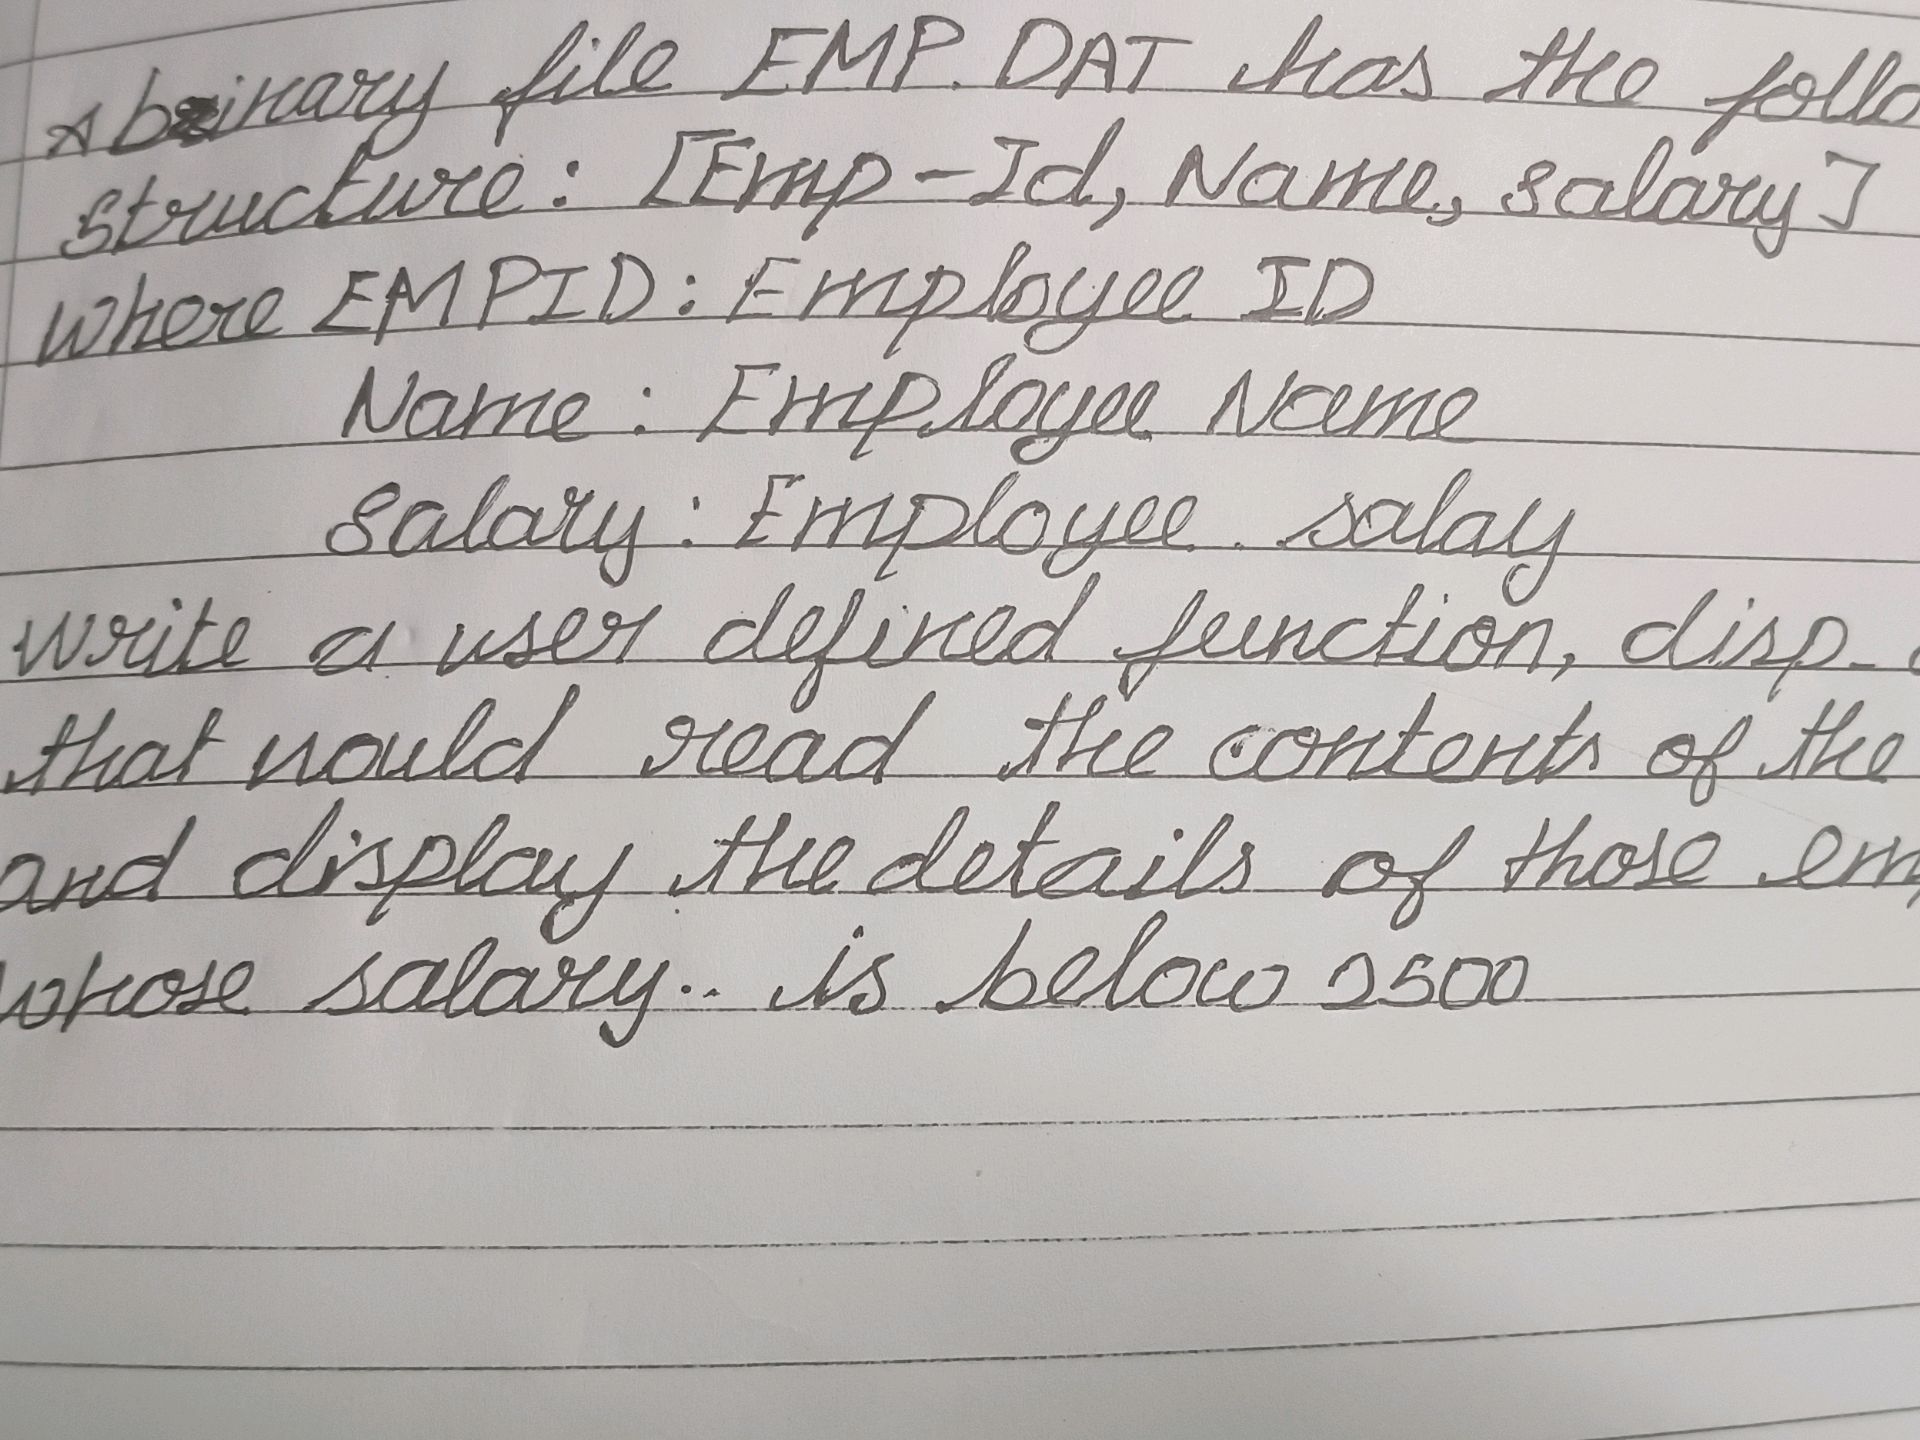 A binary file EMP.DAT has the follo
structure: [Emp-Id, Name, salary]
where EMPID: Employee ID
Name: Employee Name
Salary: Employee salay
write a user defined function, disp-
that would read the contents of the
and display the details of those em
whose salary.. is below 2500